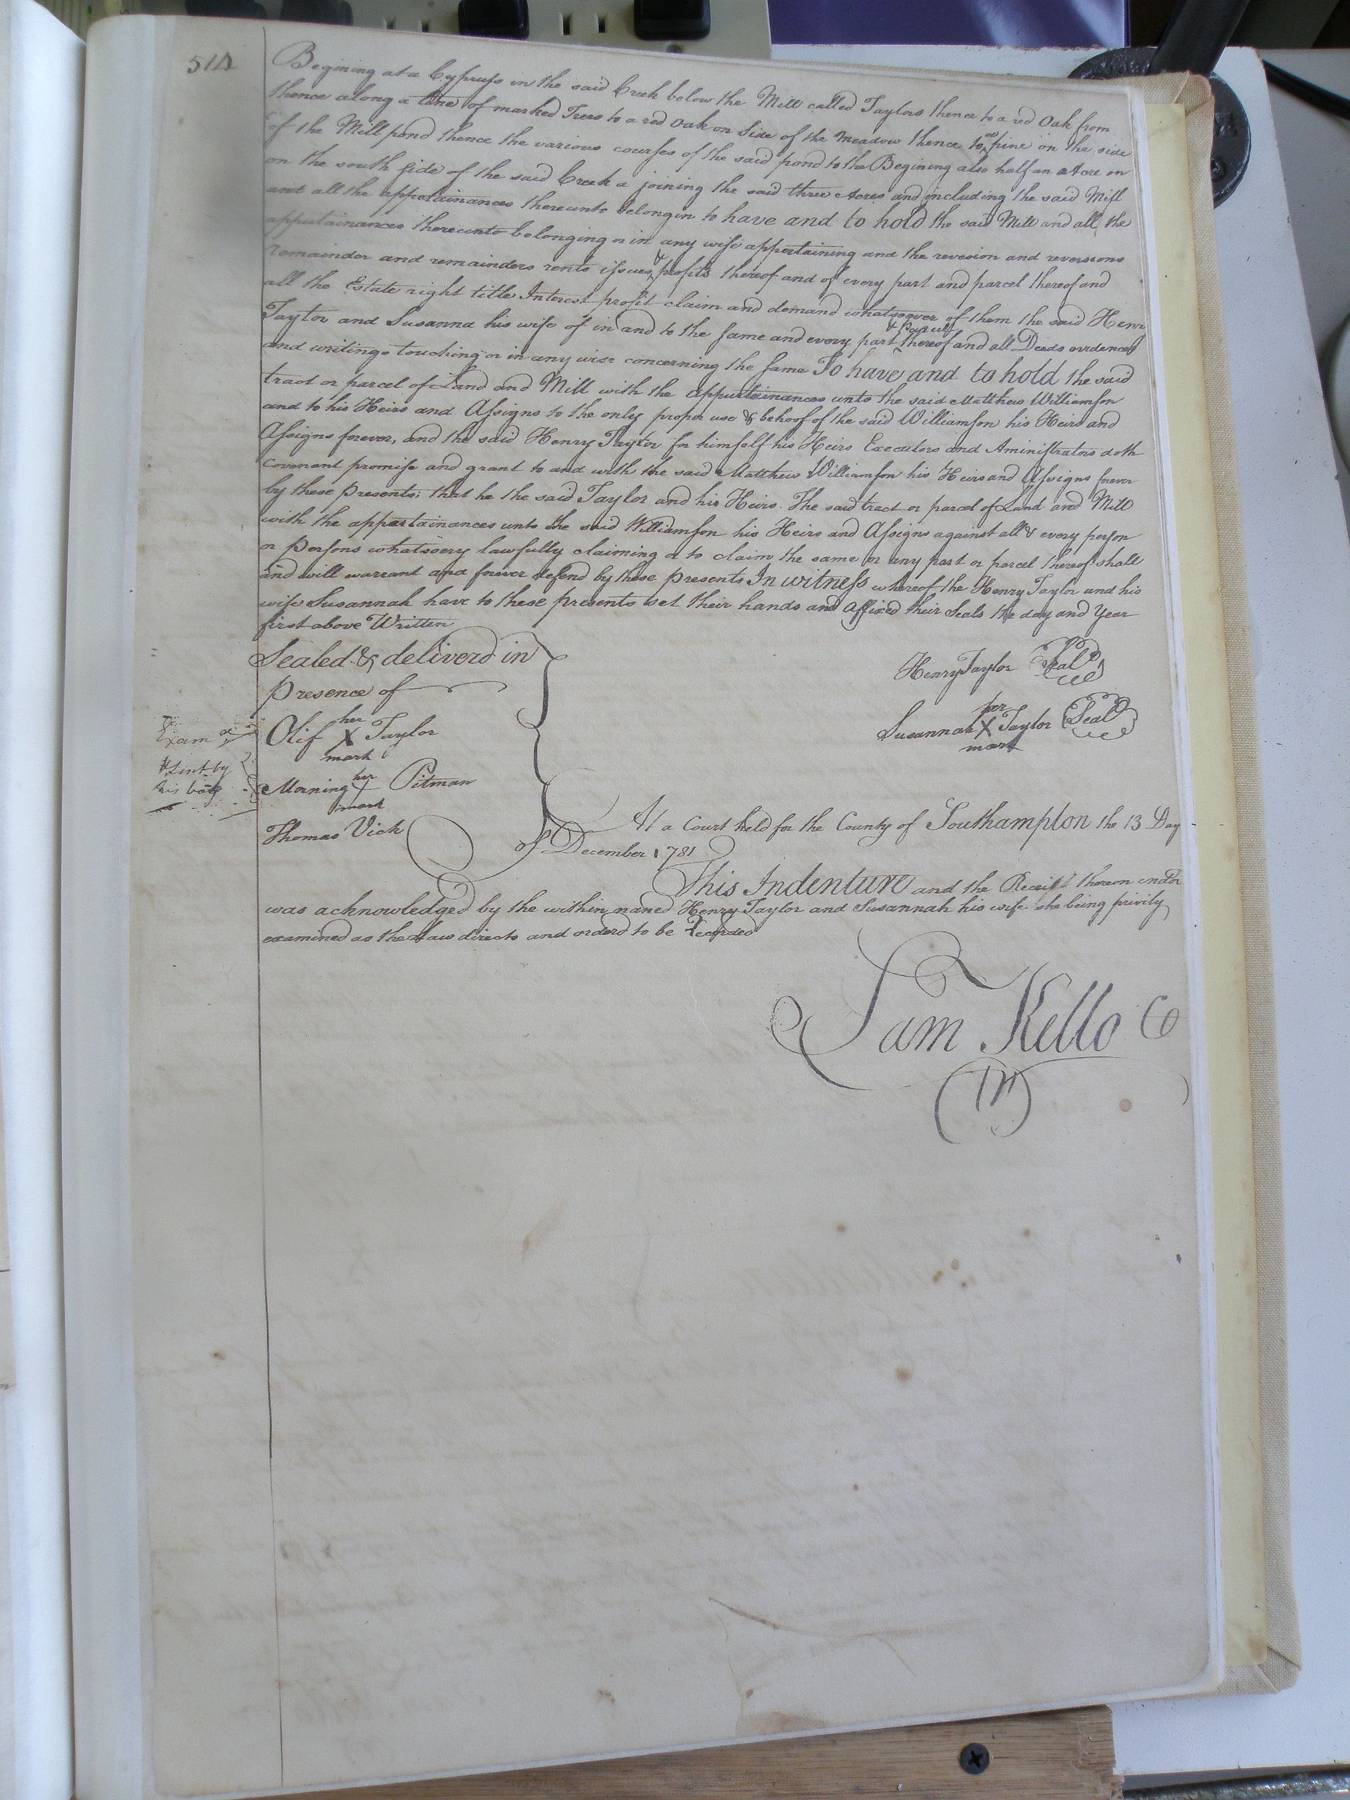 514
Begining at a Cypruss in the said Creek below the Mill called Taylors thence to a red Oak from
thence along a line of marked Trees to a red Oak on Side of the meadow thence to a pine on the side
of the Mill pond thence the various courses of the said pond to the Begining also half an Acre on
on the south side of the said Creek a joining the said three Acres and including the said Mill
and all the appertainances thereunto belongin to have and to hold the said Mill and all the
appurtainances thereunto belonging or in any wise appertaining and the revesion and reversions
remainder and remainders rents issues & profits thereof and of every part and parcel thereof and
all the Estate right title Interest profit claim and demand whatsoever of them the said Henry
Taylor and Susanna his wife of in and to the same and every part & parcel thereof and all Deeds evidences
and writings touching or in any wise concerning the same To have and to hold the said
tract or parcel of Land and Mill with the appurtainances unto the said Matthew Williamson
and to his Heirs and Assigns to the only proper use & behoof of the said Williamson his Heirs and
Assigns forever, and the said Henry Taylor for himself his Heirs Executors and Aministrators doth
covenant promise and grant to and with the said Matthew Williamson his Heirs and Assigns forever
by these Presents, that he the said Taylor and his Heirs. The said tract or parcel of Land and Mill
with the appartainances unto the said Williamson his Heirs and Assigns against all & every person
or persons whatsoery lawfully claiming or to claim the same or any part or parcel thereof shall
and will warrant and forever defend by these presents In witness whereof the Henry Taylor and his
wife Susannah have to these presents set their hands and affixed their Seals the day and Year
first above Written
Sealed & deliverd in
presence of
Henry Taylor Seal
her
Olif X Taylor
mark
her
Susannah X Taylor Seal
mark
Exam
his
her
Morning X Pitman
mark
Thomas Vick
At a Court held for the County of Southampton the 13 Day
of December 1781
This Indenture and the Receipt thereon
was acknowledged by the within named Henry Taylor and Susannah his wife she being privily
examined as the Law directs and orderd to be Recorded
Sam Kello C